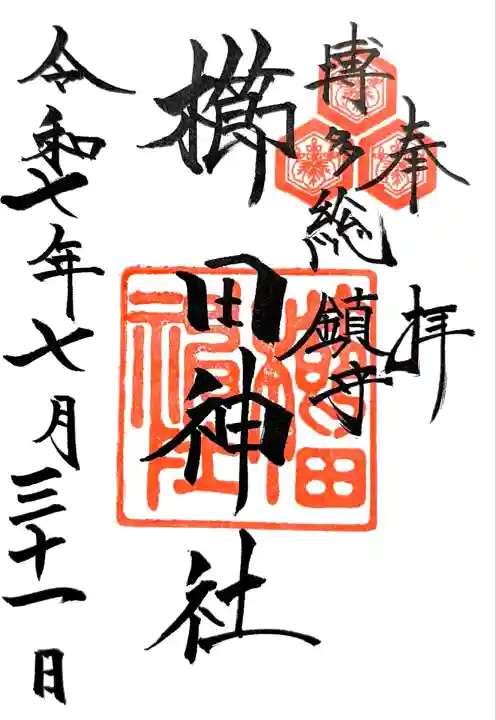 奉拝
博多総鎮守
櫛田神社
櫛田神社
令和七年七月三十一日